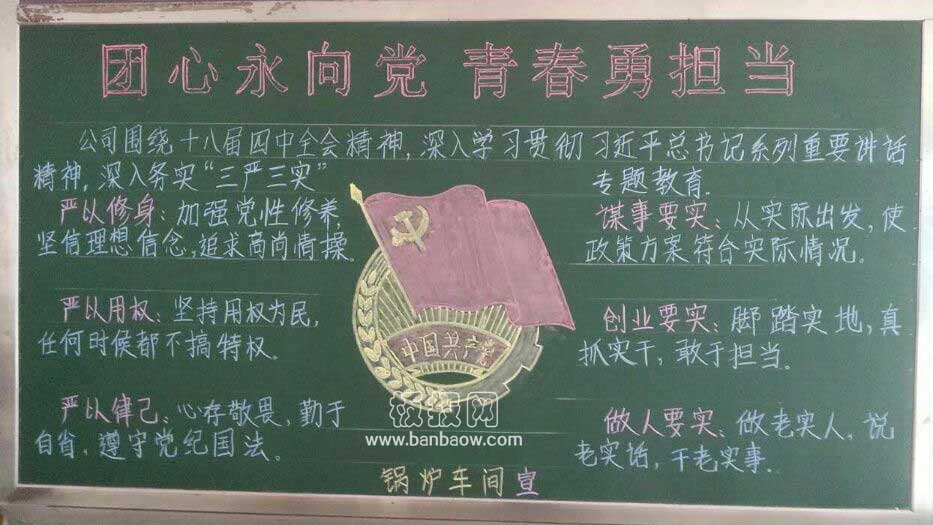 团心永向党 青春勇担当
公司围绕十八届四中全会精神，深入学习贯彻习近平总书记系列重要讲话
精神，深入务实“三严三实”
专题教育．
严以修身：加强党性修养，
坚信理想信念，追求高尚情操。
严以用权：坚持用权为民，
任何时候都不搞特权．
严以律己：心存敬畏、勤于
自省，遵守党纪国法．
谋事要实：从实际出发，使
政策方案符合实际情况．
创业要实：脚踏实地，真
抓实干，敢于担当．
做人要实：做老实人，说
老实话，干老实事．
中国共产党
板报网
www.banbaow.com
锅炉车间宣